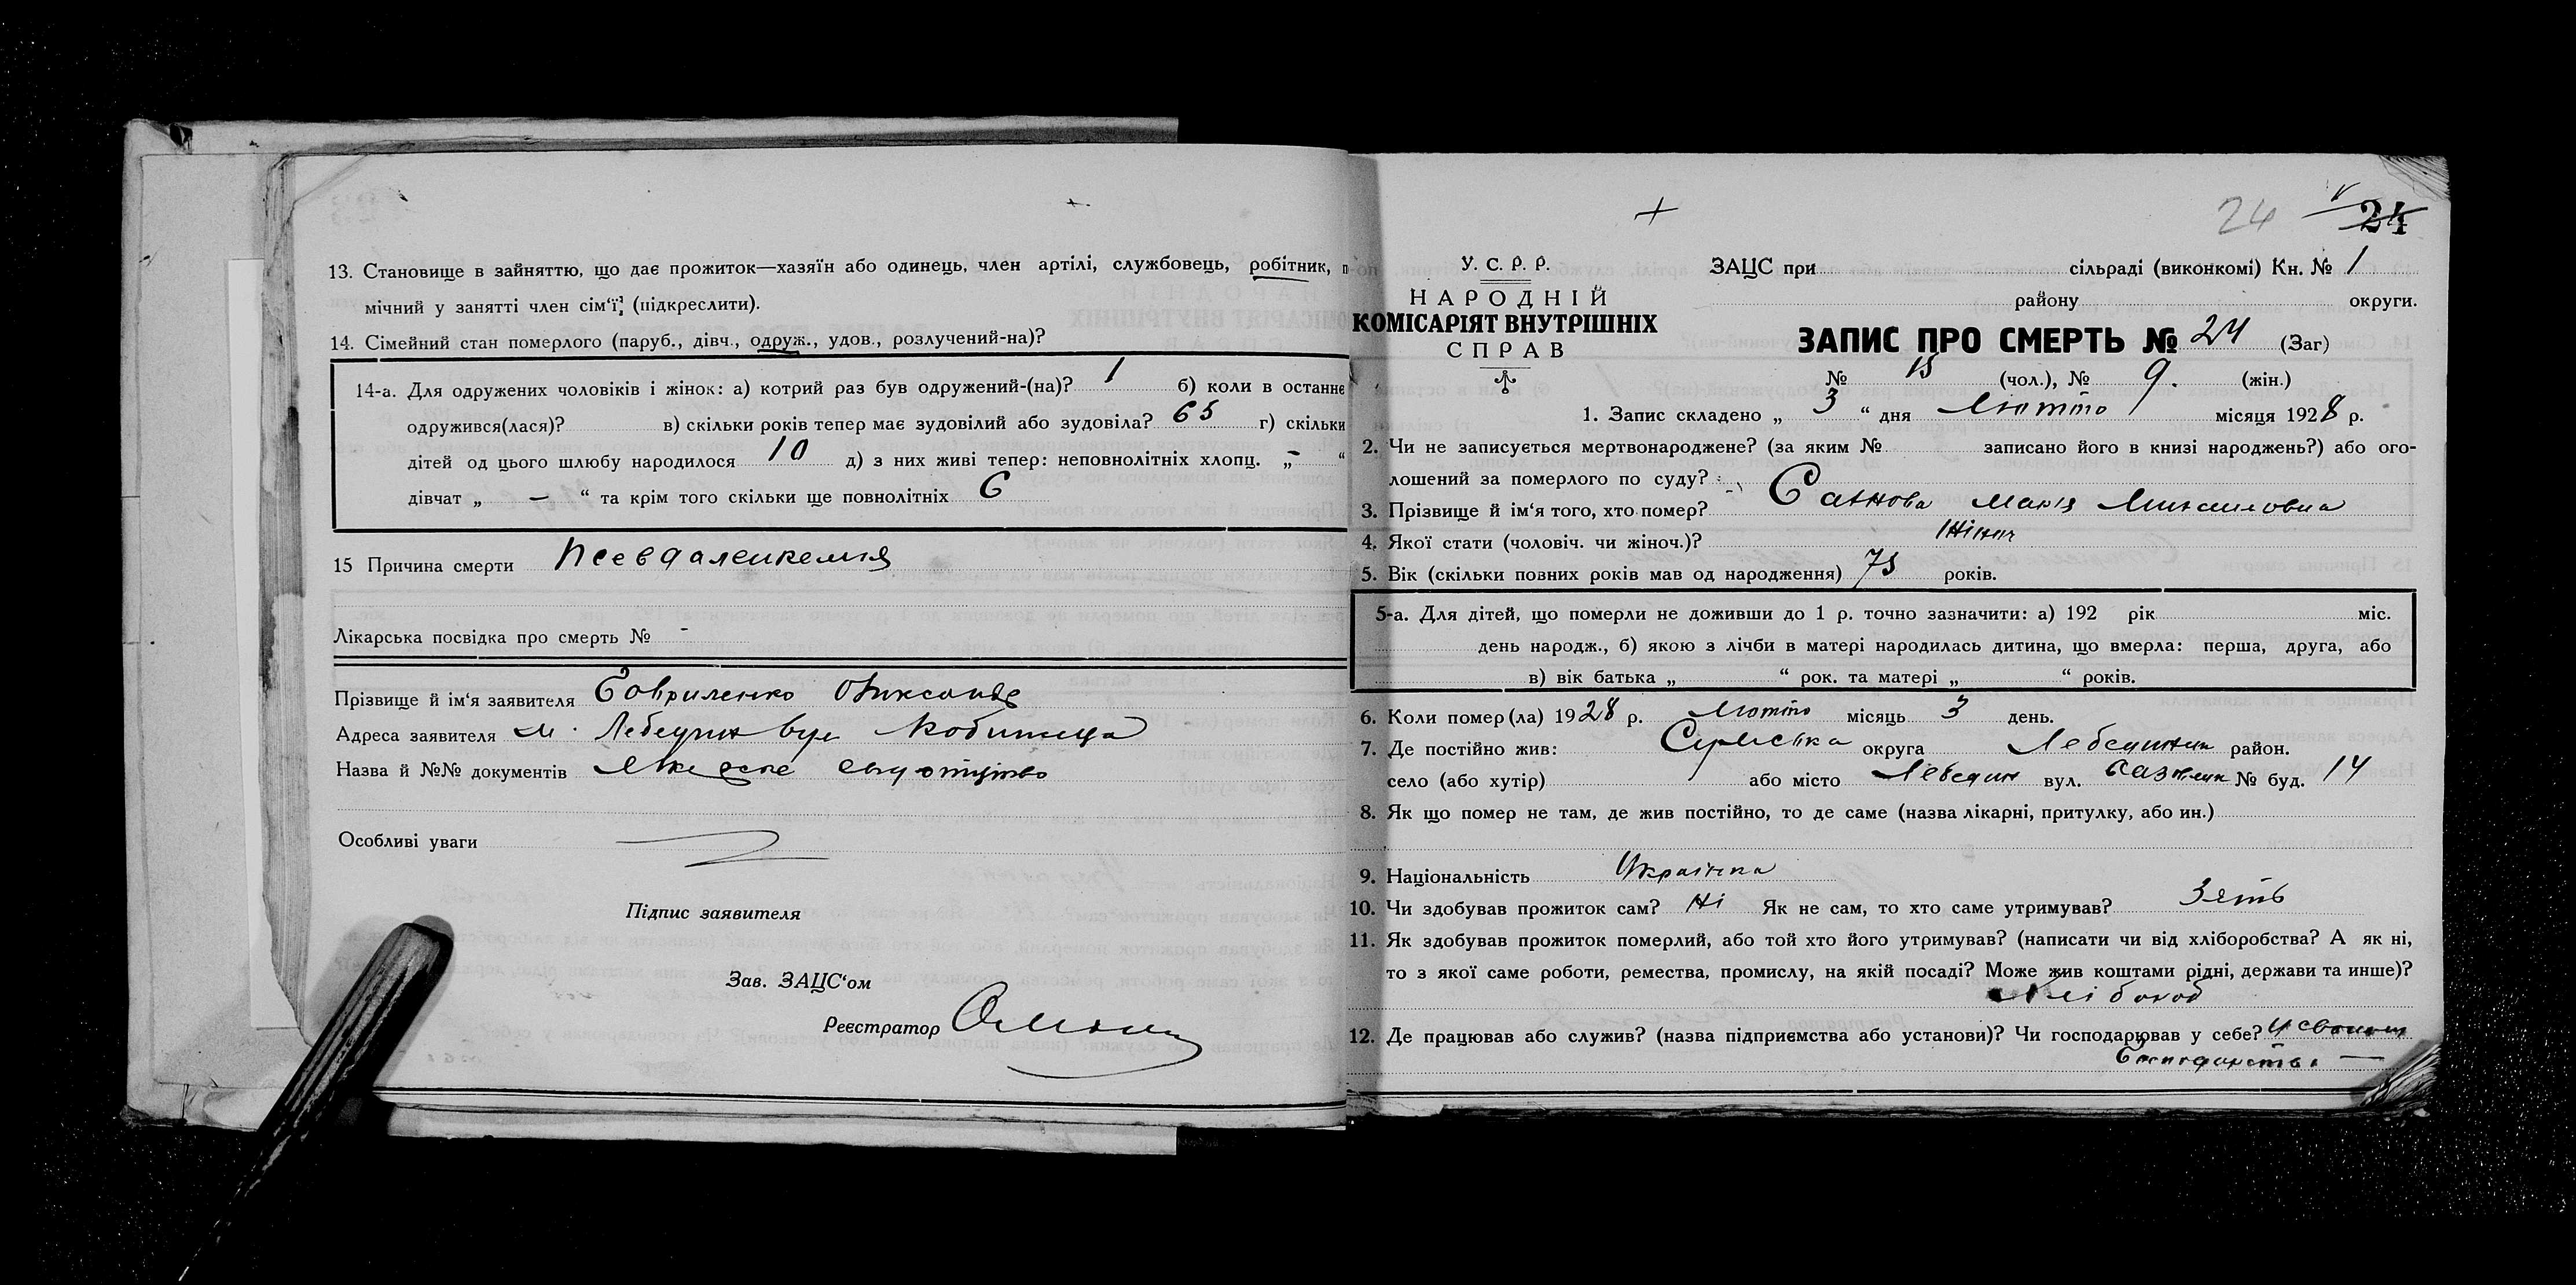 13. Становище в зайняттю, що дає прожиток—хазяїн або одинець, член артілі, службовець, робітник, п
мічний у занятті член сім'ї, (підкреслити).
14. Сімейний стан померлого (паруб., дівч., одруж., удов., розлучений-на)?
14-а. Для одружених чоловіків і жінок: а) котрий раз був одружений-(на)? 1 б) коли в останнє
одружився(лася)? в) скільки років тепер має зудовілий або зудовіла? 65 г) скільки
дітей од цього шлюбу народилося 10 д) з них живі тепер: неповнолітніх хлопц. „ – “
дівчат „ – “ та крім того скільки ще повнолітніх 6
15 Причина смерти Псевдалейкемія
Лікарська посвідка про смерть № -
Прізвище й ім'я заявителя Гавриленко
Адреса заявителя м. Лебедин вул Кобижча
Назва й №№ документів
Особливі уваги
Підпис заявителя
Зав. ЗАЦС'ом
Реєстратор
24 24
У. С. Р. Р.
НАРОДНІЙ
КОМІСАРІЯТ ВНУТРІШНІХ
СПРАВ
ЗАЦС при сільраді (виконкомі) Кн. № 1
району округи.
ЗАПИС ПРО СМЕРТЬ № 24 (Заг)
№ 15 (чол.), № 9. (жін.)
1. Запис складено „ 3 “ дня Лютого місяця 1928 р.
2. Чи не записується мертвонароджене? (за яким № записано його в книзі народжень?) або ого-
лошений за померлого по суду?
3. Прізвище й ім'я того, хто помер? Марія
4. Якої стати (чоловіч. чи жіноч.)? Жіноч
5. Вік (скільки повних років мав од народження) 75 років.
5-а. Для дітей, що померли не доживши до 1 р. точно зазначити: а) 192 рік міс.
день народж., б) якою з лічби в матері народилась дитина, що вмерла: перша, друга, або
в) вік батька „ “ рок. та матері „ “ років.
6. Коли помер(ла) 1928 р. Лютого місяць 3 день.
7. Де постійно жив: Сумська округа Лебединськ район.
село (або хутір) або місто Лебедин вул. № буд. 14
8. Як що помер не там, де жив постійно, то де саме (назва лікарні, притулку, або ин.)
9. Національність Українка
10. Чи здобував прожиток сам? Ні Як не сам, то хто саме утримував? Зять
11. Як здобував прожиток померлий, або той хто його утримував? (написати чи від хліборобства? А як ні,
то з якої саме роботи, ремества, промислу, на якій посаді? Може жив коштами рідні, держави та инше)?
Хлібороб
12. Де працював або служив? (назва підприємства або установи)? Чи господарював у себе? У своєму
Господарстві —